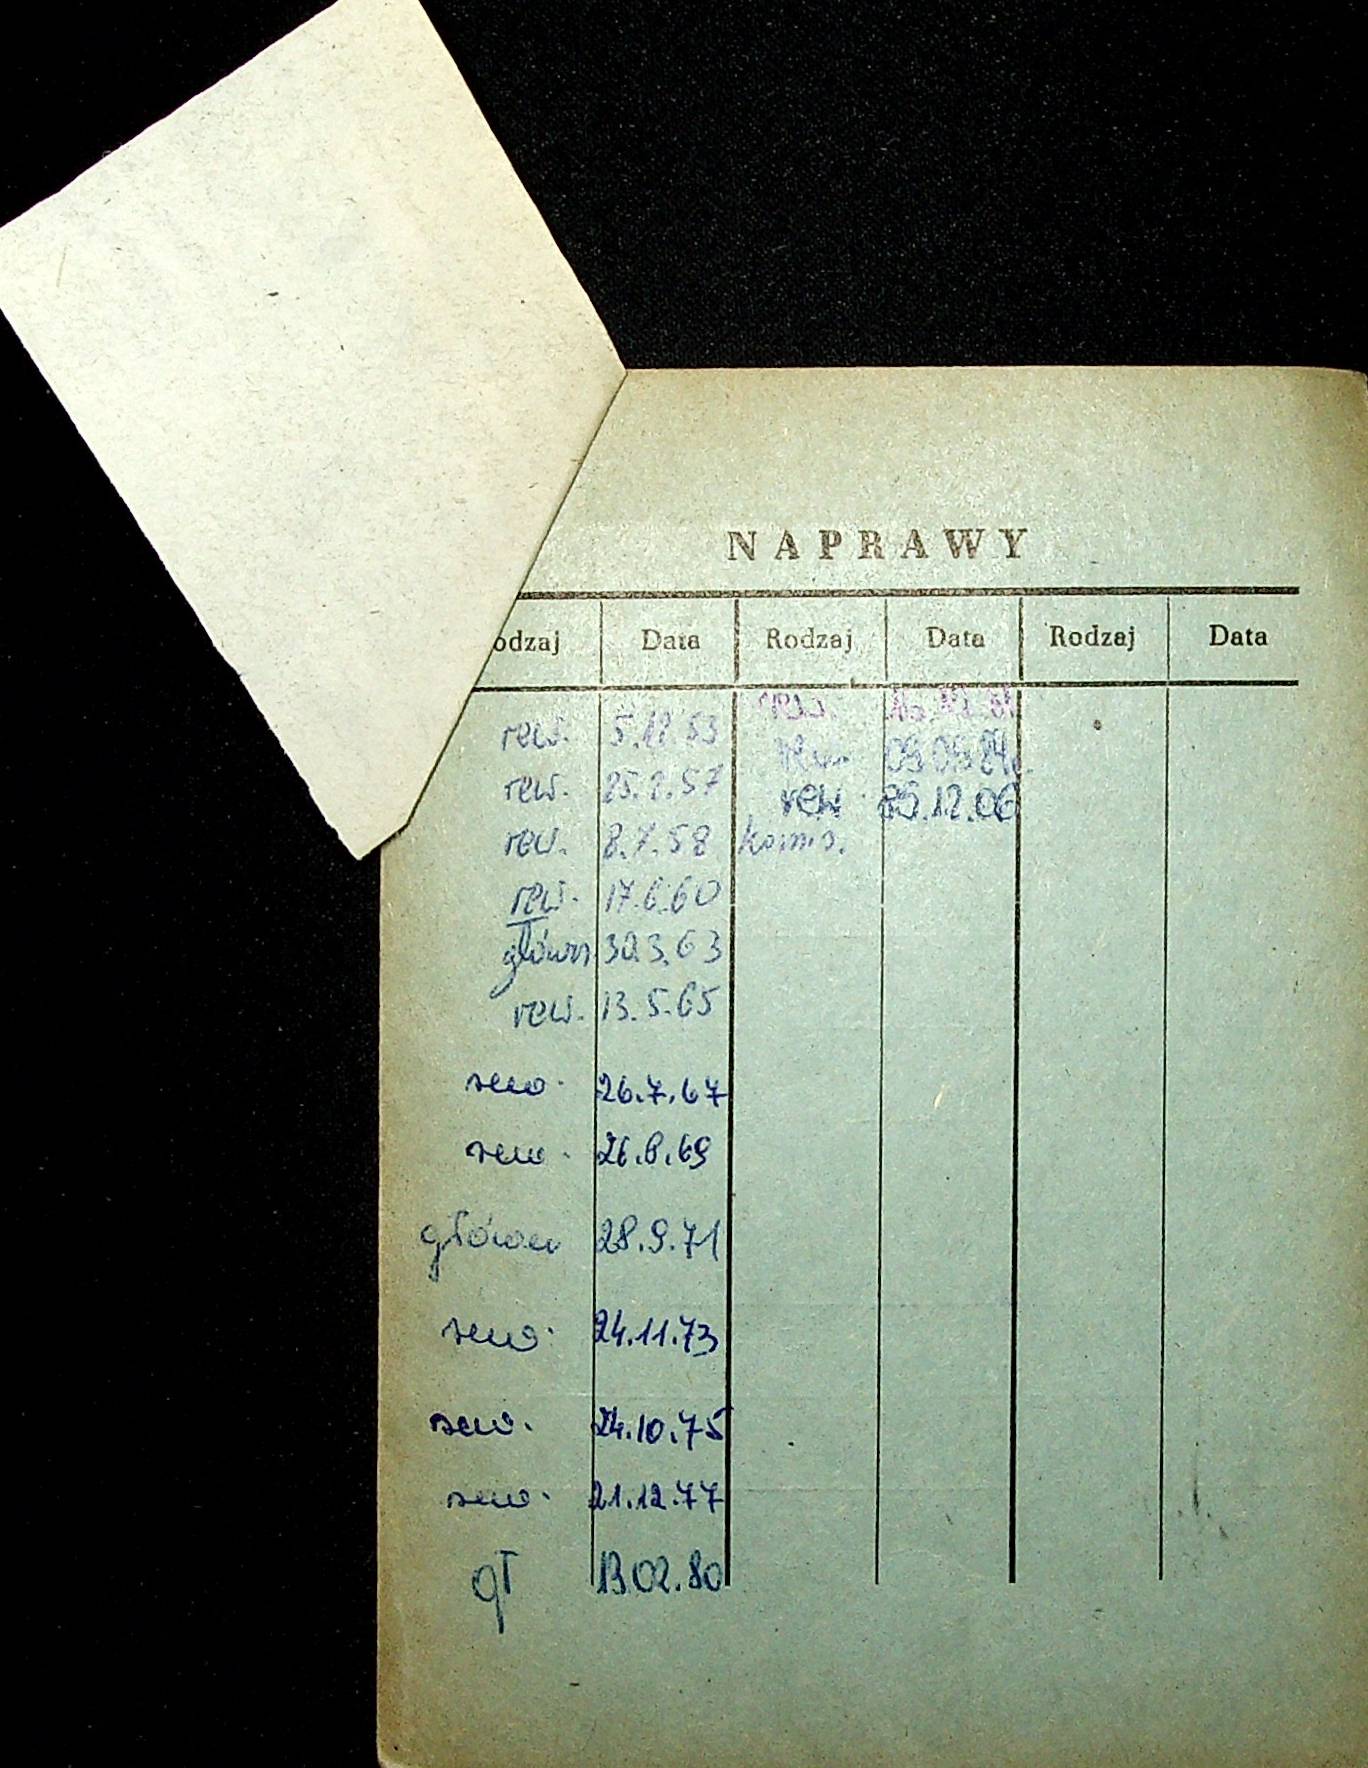 NAPRAWY
odzaj Data Rodzaj Data Rodzaj Data
rew. 5.12.53
rew. 25.2.57
rew. 8.7.58
rew. 17.6.60
główn 30.3.63
rew. 13.5.65
rew. 26.7.67
rew. 26.8.69
główn 28.9.71
rew. 24.11.73
rew. 24.10.75
rew. 21.12.77
gł 13.02.80
rew.
09.05.84
rew 85.12.06